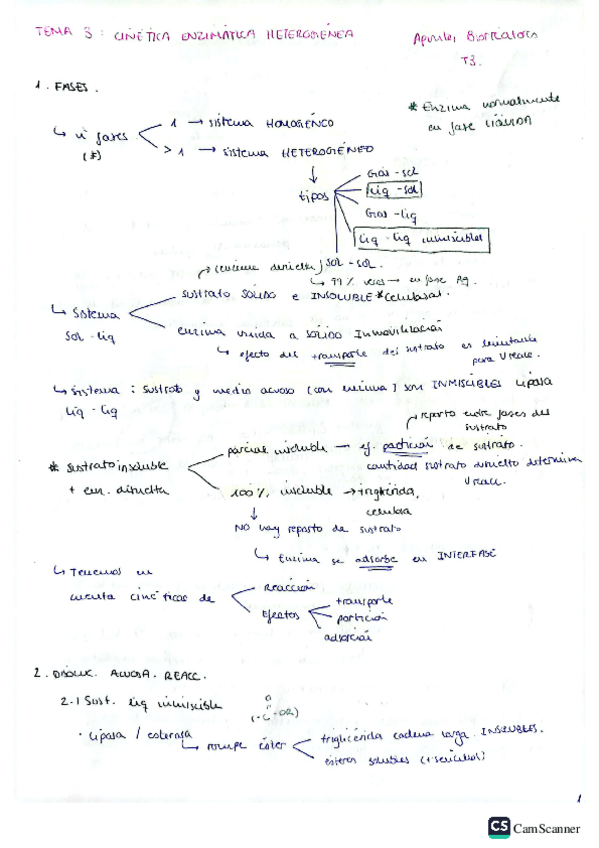 TEMA 3: CINÉTICA ENZIMÁTICA HETEROGÉNEA
Apuntes Biorreactores
T3.
1. FASES.
* Enzima normalmente
en fase LÍQUIDA
↳ nº fases
(*)
1 → sistema HOMOGÉNEO
> 1 → sistema HETEROGÉNEO
↓
tipos
Gas - sol
Liq - sol
Gas - liq
Liq - liq inmiscibles
sol - sol.
↳ 99% veces → en fase Aq.
↳ Sistema
Sol - liq
(enzima disuelta)
sustrato SÓLIDO e INSOLUBLE * celulasa!
enzima unida a SÓLIDO Inmovilización
↳ efecto del transporte del sustrato es limitante
para Vreacc.
↳ Sistema : sustrato y medio acuoso (con enzima) son INMISCIBLES Lipasa
Liq - liq
* Sustrato insoluble
+ enz. disuelta
reparto entre fases del
sustrato
parcial. insoluble → ef. partición de sustrato.
cantidad sustrato disuelto determina
Vreacc.
100% insoluble → triglicérido,
celulosa
↓
NO hay reparto de sustrato
↳ Enzima se adsorbe en INTERFASE
↳ Tenemos en
cuenta cinéticas de
Reacción
Efectos
transporte
partición
adsorción
2. DISOLUC. ACUOSA. REACC.
2.1 Sust. liq inmiscible
O
(-C-OR)
· Lipasa / esterasa
↳ rompe éster
triglicérido cadena larga. INSOLUBLES.
ésteres solubles
1
CS CamScanner